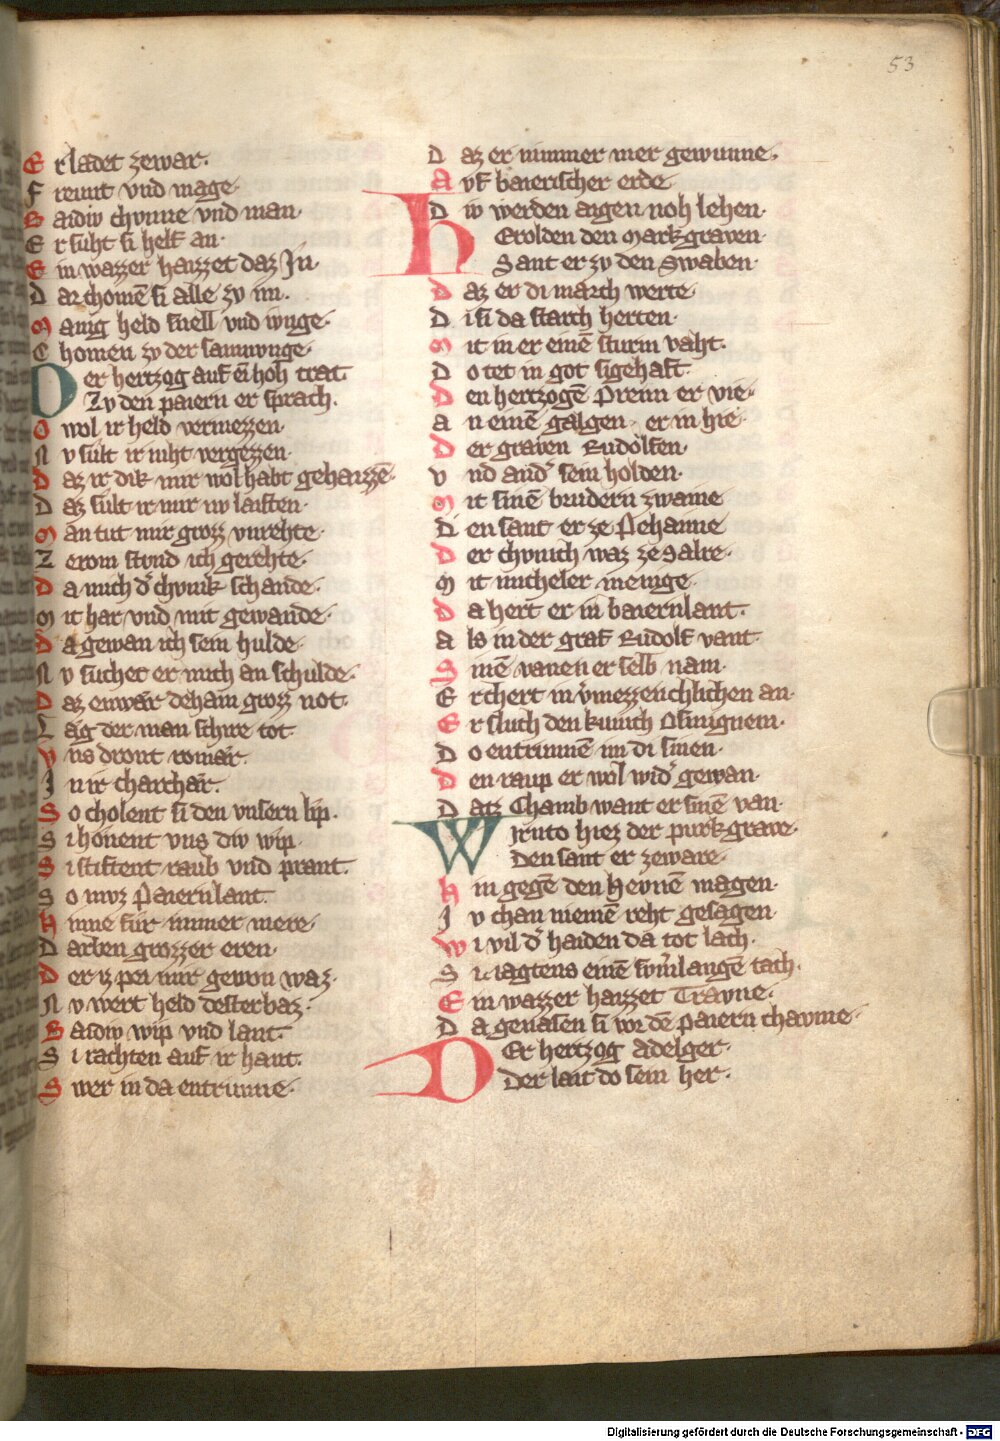 53
Er ladet zewar.
Freunt vnd mage.
Baidiv chvnne vnd man.
Er suht si helf an.
Ein wazzer haizzet daz Jn.
Dar chomē si alle zv im.
Manig held snell vnd ivnge.
Chomen zv der samnvnge.
Der hertzog auf ei hoh trat.
Zv den paiern er sprach.
O wol ir held vermezzen.
Nv sult ir niht vergezzen.
Daz ir dik mir wol habt gehaizzē.
Daz sult ir mir nv laisten.
Man tut mir grozz vnrehte
Ze rom stvnd ich gerehte.
Da mich d̓ chvnik schande.
Mit har vnd mit gewande.
Da gewan ich sein hulde.
Nv suchet er mich an schulde.
Daz enwar dehain grozz not.
Lag der man schire tot.
Vns dront romær.
Jn ir charchær.
So cholent si den vnsern lip.
Si honent vns div wip.
Si stiftent raub vnd prant.
So mvz Paiernlant.
Hinne fur immer mere.
Darben grozzer eren.
Der iz pei mir gewon waz.
Nv wert held dester baz.
Baidiv wip vnd lant.
Si rachten auf ir hant.
Swer in da entrunne.
Daz er nimmer mer gewunne.
Auf baierischer erde
Div werden aigen noh lehen.
HErolden den Markgraven.
Sant er zv den Swaben.
Daz er di march werte.
Di si da starch herten.
Mit in er einē sturm vaht.
Do tet in got sigehaft.
Den hertzogē Prenn er vie.
an einē galgen er in hie.
Der graven Rudolfen.
vnd and̓ sein holden.
Mit sinē brudern zwaine
Di en sant er ze Pehaime
Der chvnich waz ze Salre.
Mit micheler menige.
Da hert er in baiernlant.
als in der graf Rudolf vant.
Sinē vanen er selb nam.
Er chert in v̓mezzenchlichen an.
Er sluch den kunich Osmignem.
Do entrunnē im di sinen.
Den raup er wol wid̓ gewan.
Datz Chamb want er sinē van.
Wiruto hiez der purkgrave.
Den sant er zeware.
Hin gegē den Hevnē magen.
Jv chan niemē reht gesagen.
Wi vil d̓ haiden da tot lach.
Si iagtens einē svm̓langē tach.
Ein wazzer haizzet Travne.
Da genasen si vor dē paiern chavme.
DEr hertzog Adelger.
Der lait do sein her.
Digitalisierung gefördert durch die Deutsche Forschungsgemeinschaft - DFG